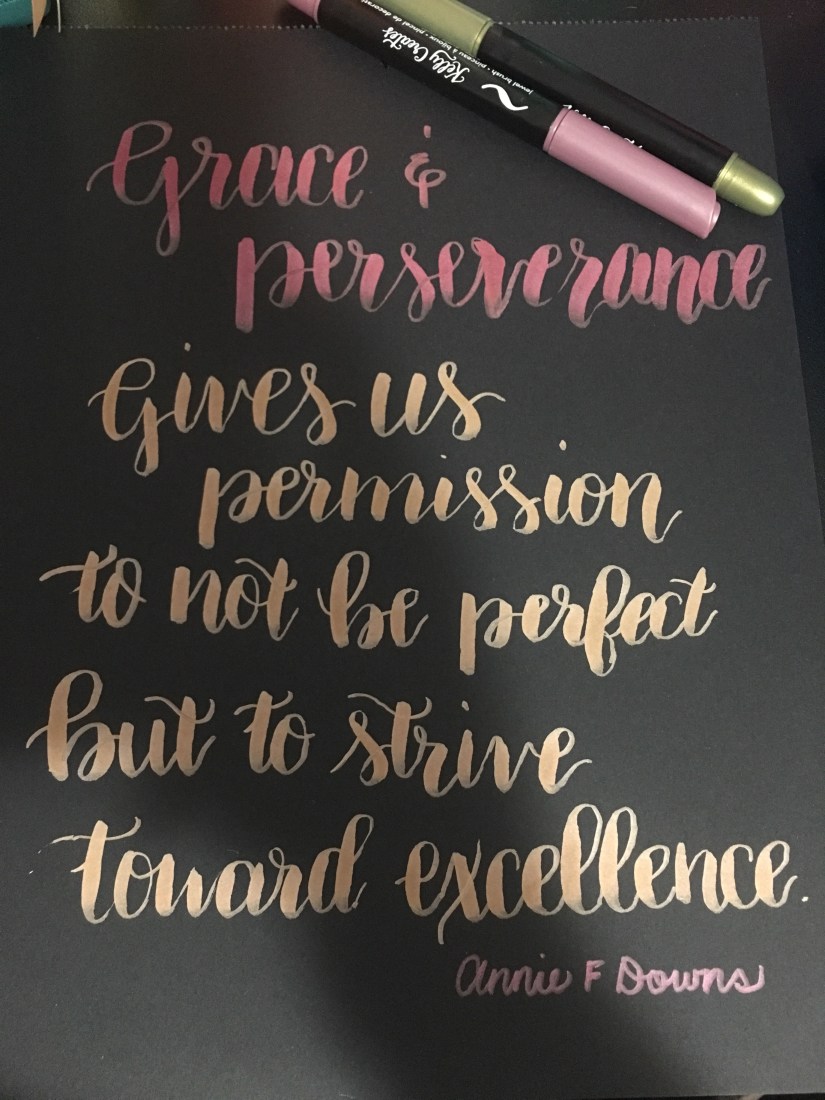 Kelly Creates
jewel brush • pinceau à bijoux • pincel de
Grace &
perseverance
Gives us
permission
to not be perfect
but to strive
toward excellence.
Annie F Downs